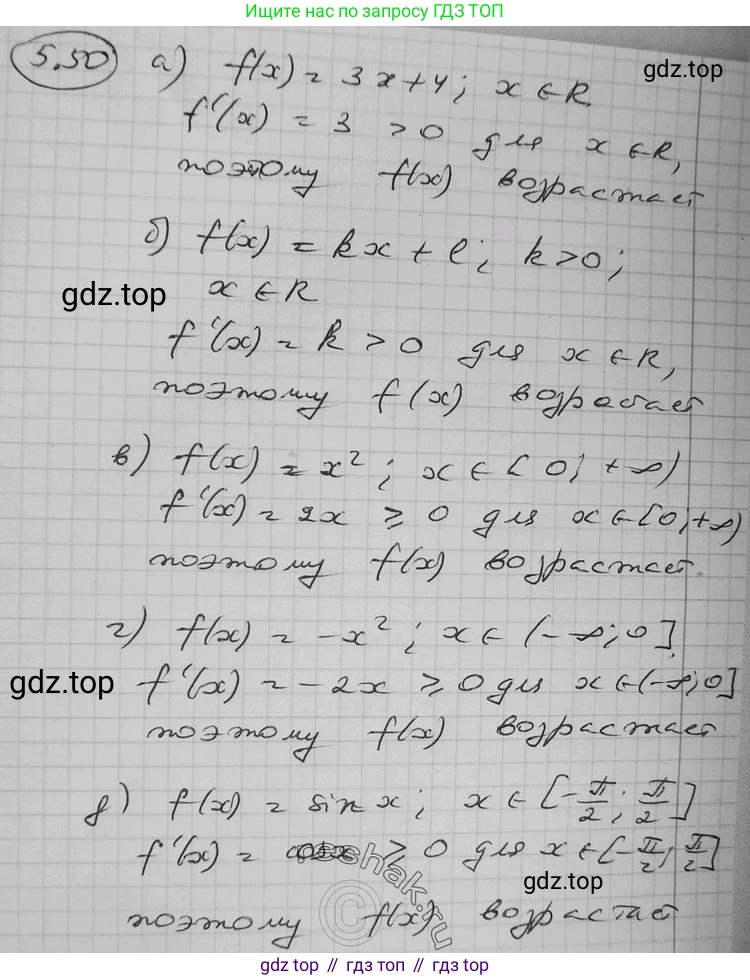 Ищите нас по запросу ГДЗ ТОП
5.50 а) f(x) = 3x+4; x ∈ R
gdz.top
f'(x) = 3 > 0 для x ∈ R,
поэтому f(x) возрастает
б) f(x) = kx + l; k>0;
gdz.top
x ∈ R
f'(x) = k > 0 для x ∈ R,
поэтому f(x) возрастает
в) f(x) = x²; x ∈ [0; +∞)
f'(x) = 2x ≥ 0 для x ∈ [0; +∞)
поэтому f(x) возрастает.
г) f(x) = -x²; x ∈ (-∞; 0]
gdz.top
f'(x) = -2x ≥ 0 для x ∈ (-∞; 0]
поэтому f(x) возрастает
д) f(x) = sin x; x ∈ [-π/2; π/2]
f'(x) = cos x ≥ 0 для x ∈ [-π/2; π/2]
gdz.top
поэтому f(x) возрастает
© reshak.ru
gdz.top // гдз.топ // gdz.top